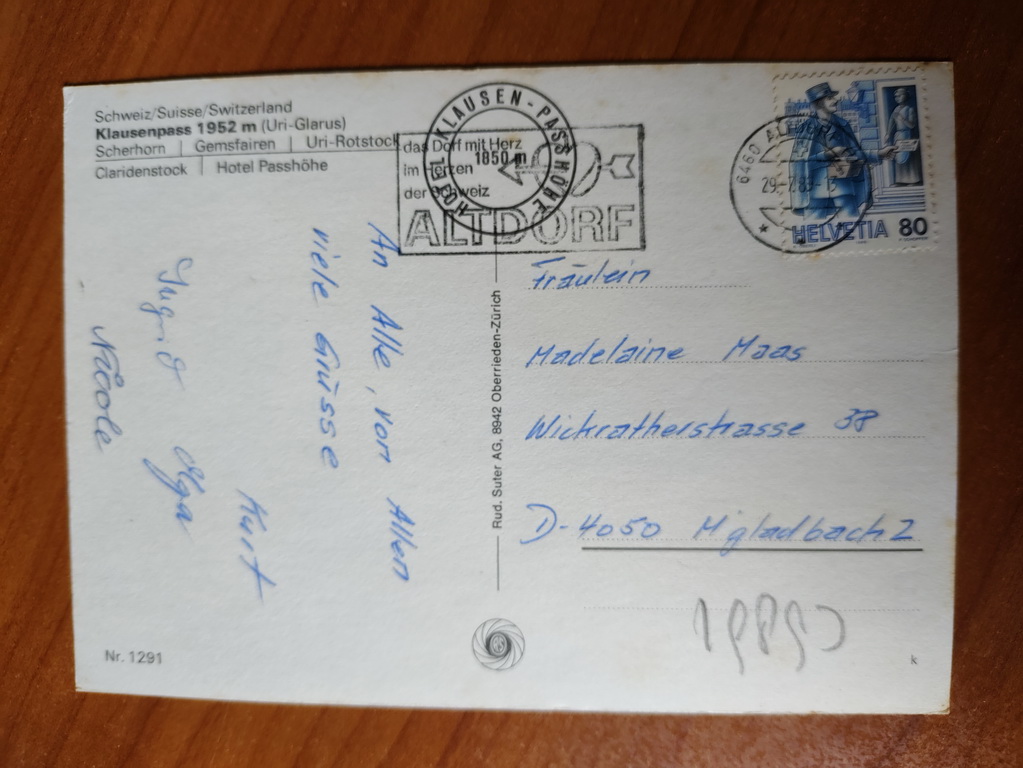 Schweiz/Suisse/Switzerland
Klausenpass 1952 m (Uri-Glarus)
Scherhorn | Gemsfairen | Uri-Rotstock
Claridenstock | Hotel Passhöhe
HOTEL KLAUSEN-PASSHÖHE
1850 m
das Dorf mit Herz
im Herzen
der Schweiz
ALTDORF
6460 ALTDORF
HELVETIA 80
An Alle, von Allen
viele Grüsse
Kurt
Ingrid Olga
Nicole
Rud. Suter AG, 8942 Oberrieden-Zürich
Fräulein
Madelaine Maas
Wickratherstrasse 38
D-4050 M'gladbach 2
Nr. 1291
k